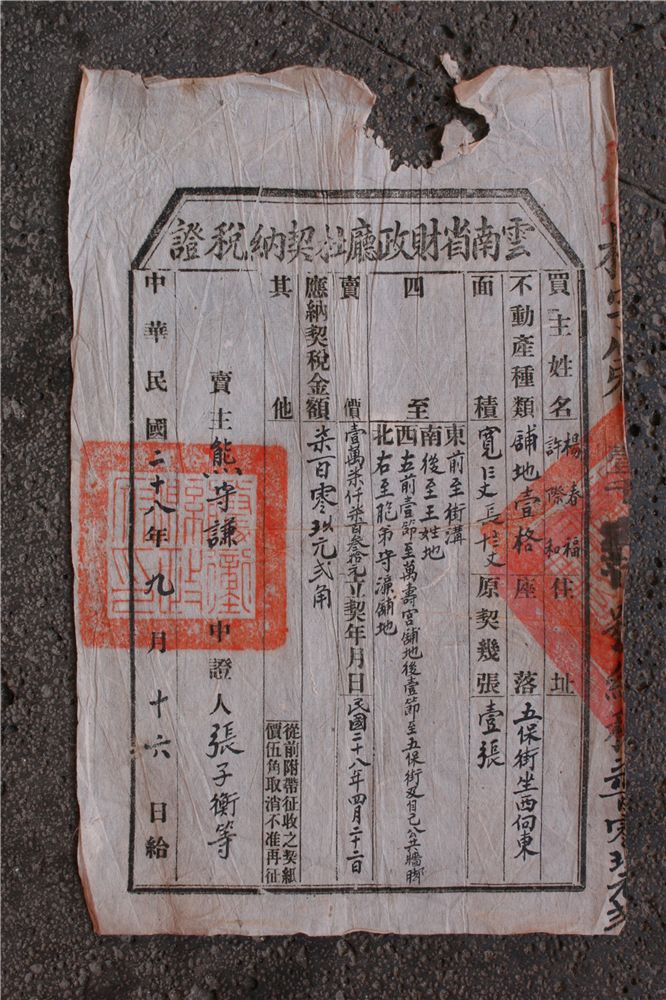 雲南省財政廳杜契納稅證
買主姓名 楊春福 許際和 住址
不動產種類 舖地壹格 座落 五保街坐西向東
面積 寬 丈長 丈 原契幾張 壹張
四至
東前至街溝
南後至王姓地
西左前壹節至萬壽宮舖地後壹節至五保街及自己公共牆脚
北右至胞弟守濂舖地
賣價 壹萬柒仟柒百叁拾元 立契年月日 民國二十八年四月二十二日
應納契稅金額 柒百零玖元弍角
其他
從前附帶征收之契紙
價伍角取消不准再征
賣主熊守謙 中證人張子衡等
中華民國二十八年九月十六日給